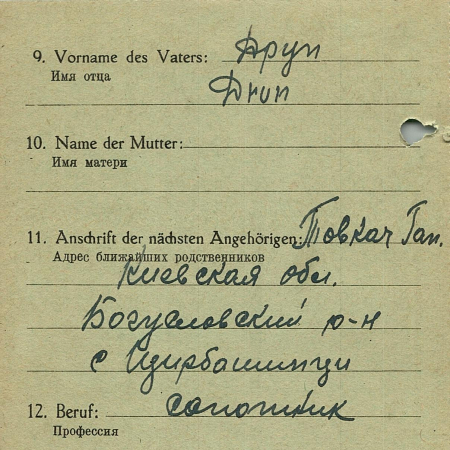 9. Vorname des Vaters: Друп
Имя отца
10. Name der Mutter:
Имя матери
11. Anschrift der nächsten Angehörigen: Товкач Гап.
Адрес ближайших родственников
Киевская обл.
Богуславский р-н
с
12. Beruf: сапожник
Профессия